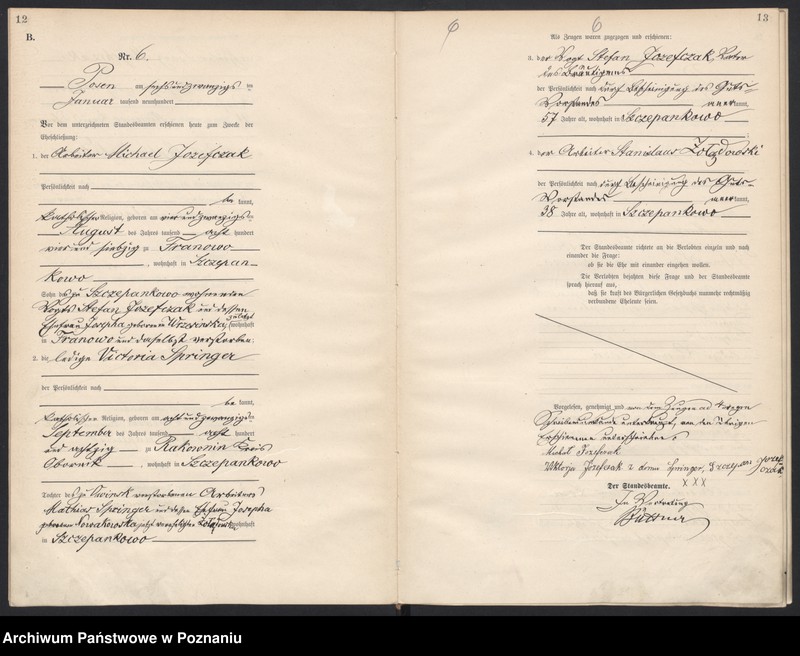 12
B.
Nr. 6.
Posen am sechsundzwanzigsten
Januar tausend neunhundert
Vor dem unterzeichneten Standesbeamten erschienen heute zum Zwecke der
Eheschließung:
1. der Arbeiter Michael Jozefczak
Persönlichkeit nach
be kannt,
katholischer Religion, geboren am vierundzwanzigsten
August des Jahres tausend acht hundert
vierundsiebzig zu Tranowo
, wohnhaft in Szczepan-
kowo
Sohn des zu Szczepankowo wohnenden
Vogts Stefan Jozefczak und dessen
Ehefrau Josepha geborenen zuletzt wohnhaft
in Tranowo und daselbst verstorben;
2. die ledige Victoria Springer
der Persönlichkeit nach
be kannt,
katholischer Religion, geboren am achtundzwanzigsten
September des Jahres tausend acht hundert
undachtzig zu Rakownin Kreis
Obornik, wohnhaft in Szczepankowo
Tochter des zu verstorbenen Arbeiters
Mathias Springer und dessen Ehefrau Josepha
geborenen Nowakowska jetzt verehelichten wohnhaft
in Szczepankowo
6
6
13
Als Zeugen waren zugezogen und erschienen:
3. der Vogt Stefan Jozefczak, Vater
des Bräutigams
der Persönlichkeit nach durch Bescheinigung des Guts-
Vorstandes anerkannt,
57 Jahre alt, wohnhaft in Szczepankowo
;
4. der Arbeiter Stanislaus Zołądowski
der Persönlichkeit nach durch Bescheinigung des Guts-
Vorstandes anerkannt,
38 Jahre alt, wohnhaft in Szczepankowo
Der Standesbeamte richtete an die Verlobten einzeln und nach
einander die Frage:
ob sie die Ehe mit einander eingehen wollen.
Die Verlobten bejahten diese Frage und der Standesbeamte
sprach hierauf aus,
daß sie kraft des Bürgerlichen Gesetzbuchs nunmehr rechtmäßig
verbundene Eheleute seien.
Vorgelesen, genehmigt und von dem Zeugen ad 4 wegen
Schreibensunkunde unterkreuzt, von den übrigen
Erschienenen unterschrieben
Michał Jozefczak
Wiktorja Jozefczak z domu Springer, Szczepan Jozefczak
Der Standesbeamte. XXX
In Vertretung
Büttner
Archiwum Państwowe w Poznaniu